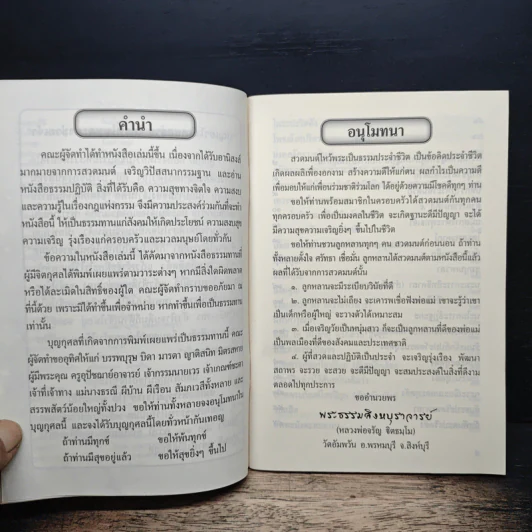 คำนำ
คณะผู้จัดทำได้ทำหนังสือเล่มนี้ขึ้น เนื่องจากได้รับอานิสงส์
มากมายจากการสวดมนต์ เจริญวิปัสสนากรรมฐาน และอ่าน
หนังสือธรรมปฏิบัติ สิ่งที่ได้รับคือ ความสุขทางจิตใจ ความสงบ
และความรู้ในเรื่องกฎแห่งกรรม จึงมีความประสงค์ร่วมกันที่จะทำ
หนังสือนี้ ให้เป็นธรรมทานแก่สังคมให้เกิดประโยชน์ ความสงบสุข
ความเจริญ รุ่งเรืองแก่ครอบครัวและมวลมนุษย์โดยทั่วกัน
ข้อความในหนังสือเล่มนี้ ได้คัดมาจากหนังสือธรรมทานที่
ผู้มีจิตกุศลได้พิมพ์เผยแพร่ตามวาระต่างๆ หากมีสิ่งใดผิดพลาด
หรือได้ละเมิดในสิทธิ์ของผู้ใด คณะผู้จัดทำกราบขออภัยมา ณ
ที่นี้ด้วย เพราะมิได้ทำขึ้นเพื่อจำหน่าย หากทำขึ้นเพื่อเป็นธรรมทาน
เท่านั้น
บุญกุศลที่เกิดจากการพิมพ์เผยแพร่เป็นธรรมทานนี้ คณะ
ผู้จัดทำขออุทิศให้แก่ บรรพบุรุษ บิดา มารดา ญาติสนิท มิตรสหาย
ผู้มีพระคุณ ครูอุปัชฌาย์อาจารย์ เจ้ากรรมนายเวร เจ้าเกณฑ์ชะตา
เจ้าที่เจ้าทาง แม่นางธรณี ผีบ้าน ผีเรือน สัมภเวสีทั้งหลาย และ
สรรพสัตว์น้อยใหญ่ทั้งปวง ขอให้ท่านทั้งหลายจงอนุโมทนาใน
บุญกุศลนี้ และจงได้รับบุญกุศลนี้โดยทั่วหน้ากันเทอญ
ถ้าท่านมีทุกข์ ขอให้พ้นทุกข์
ถ้าท่านมีสุขอยู่แล้ว ขอให้สุขยิ่งๆ ขึ้นไป
อนุโมทนา
สวดมนต์ไหว้พระเป็นธรรมประจำชีวิต เป็นข้อคิดประจำชีวิต
เกิดผลผลิเพื่องอกงาม สร้างความดีให้แก่ตน ผลกำไรเป็นความดี
เพื่อมอบให้แก่เพื่อนร่วมชาติร่วมโลก ได้อยู่ด้วยความมีโชคดีทุกๆ ท่าน
ขอให้ท่านพร้อมสมาชิกในครอบครัวได้สวดมนต์กันทุกคน
ทุกครอบครัว เพื่อเป็นมงคลในชีวิต จะเกิดฐานะดีมีปัญญา จะได้
มีความสุขความเจริญยิ่งๆ ขึ้นไปในชีวิต
ขอให้ท่านชวนลูกหลานทุกๆ คน สวดมนต์ก่อนนอน ถ้าท่าน
ทั้งหลายตั้งใจ ศรัทธา เชื่อมั่น ลูกหลานได้สวดมนต์ตามหนังสือนี้แล้ว
ผลที่ได้รับจากการสวดมนต์นั้น
๑. ลูกหลานจะมีระเบียบวินัยที่ดี
๒. ลูกหลานจะไม่เถียง จะเคารพเชื่อฟังพ่อแม่ เขาจะรู้ว่าเขา
เป็นเด็กหรือผู้ใหญ่ จะวางตัวได้เหมาะสม
๓. เมื่อเจริญวัยเป็นหนุ่มสาว ก็จะเป็นลูกหลานที่ดีของพ่อแม่
เป็นพลเมืองที่ดีของสังคมและประเทศชาติ
๔. ผู้ที่สวดและปฏิบัติเป็นประจำ จะเจริญรุ่งเรือง พัฒนา
สถาพร จะรวย จะสวย จะดีมีปัญญา จะสมประสงค์ในสิ่งที่ดีงาม
ตลอดไปทุกประการ
ขออำนวยพร
พระธรรมสิงหบุราจารย์
(หลวงพ่อจรัญ ฐิตธมฺโม)
วัดอัมพวัน อ.พรหมบุรี จ.สิงห์บุรี